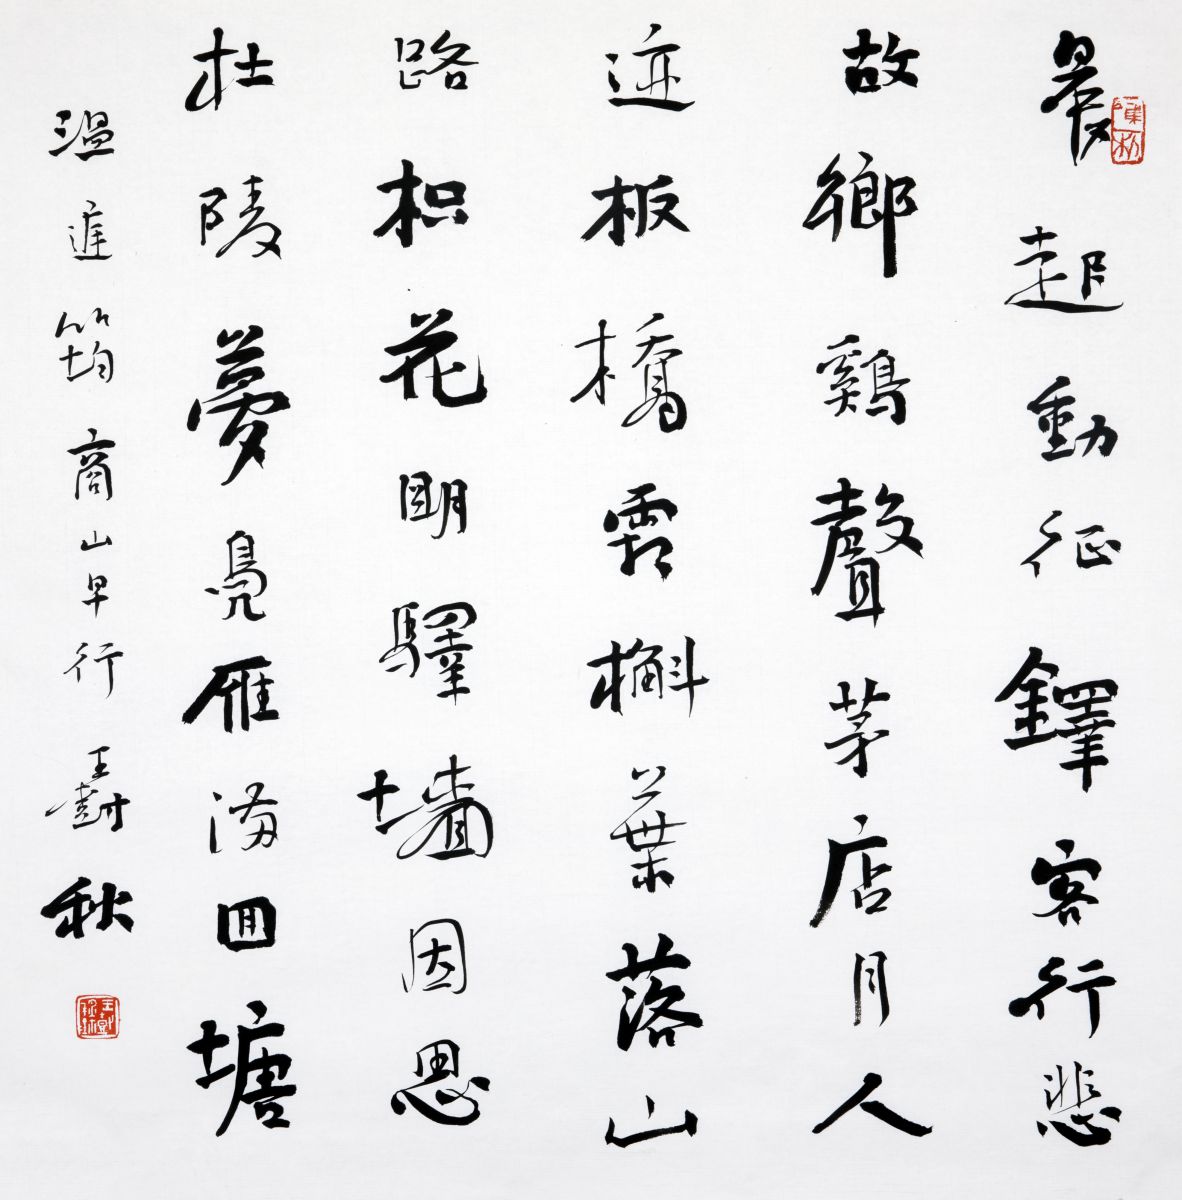 晨起動征鐸客行悲
故鄉鷄聲茅店月人
迹板橋霜槲葉落山
路枳花眀驛墻因思
杜陵夢鳧雁滿囬塘
温庭筠商山早行 王 秋